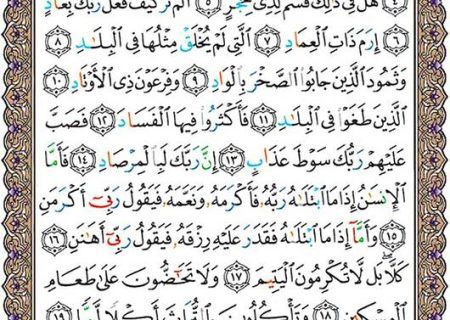 ٤ هَلْ فِي ذَٰلِكَ قَسَمٌ لِّذِي حِجْرٍ ٥ أَلَمْ تَرَ كَيْفَ فَعَلَ رَبُّكَ بِعَادٍ
٦ إِرَمَ ذَاتِ ٱلْعِمَادِ ٧ ٱلَّتِي لَمْ يُخْلَقْ مِثْلُهَا فِي ٱلْبِلَٰدِ ٨
وَثَمُودَ ٱلَّذِينَ جَابُوا۟ ٱلصَّخْرَ بِٱلْوَادِ ٩ وَفِرْعَوْنَ ذِي ٱلْأَوْتَادِ ١٠
ٱلَّذِينَ طَغَوْا۟ فِي ٱلْبِلَٰدِ ١١ فَأَكْثَرُوا۟ فِيهَا ٱلْفَسَادَ ١٢ فَصَبَّ
عَلَيْهِمْ رَبُّكَ سَوْطَ عَذَابٍ ١٣ إِنَّ رَبَّكَ لَبِٱلْمِرْصَادِ ١٤ فَأَمَّا
ٱلْإِنسَٰنُ إِذَا مَا ٱبْتَلَىٰهُ رَبُّهُۥ فَأَكْرَمَهُۥ وَنَعَّمَهُۥ فَيَقُولُ رَبِّىٓ أَكْرَمَنِ
١٥ وَأَمَّآ إِذَا مَا ٱبْتَلَىٰهُ فَقَدَرَ عَلَيْهِ رِزْقَهُۥ فَيَقُولُ رَبِّىٓ أَهَٰنَنِ ١٦
كَلَّا بَل لَّا تُكْرِمُونَ ٱلْيَتِيمَ ١٧ وَلَا تَحَٰٓضُّونَ عَلَىٰ طَعَامِ
ٱلْمِسْكِينِ ١٨ وَتَأْكُلُونَ ٱلتُّرَاثَ أَكْلًا لَّمًّا ١٩